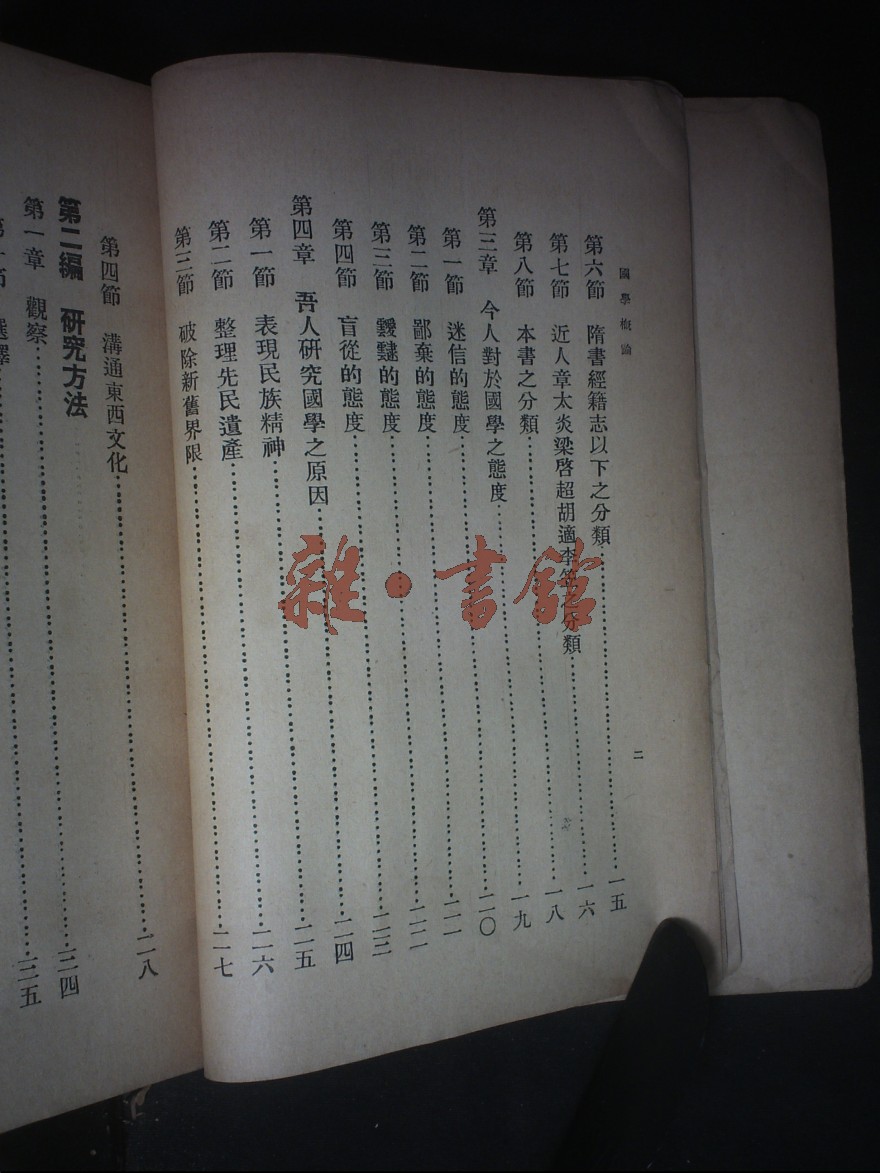 國學概論 二
第六節 隋書經籍志以下之分類……一五
第七節 近人章太炎梁啓超胡適李 之分類……一六
第八節 本書之分類……一八
第三章 今人對於國學之態度……一九
第一節 迷信的態度……二〇
第二節 鄙棄的態度……二一
第三節 靉靆的態度……二二
第四節 盲從的態度……二三
第四章 吾人研究國學之原因……二四
第一節 表現民族精神……二五
第二節 整理先民遺產……二六
第三節 破除新舊界限……二七
第四節 溝通東西文化……二八
第二編 研究方法
第一章 觀察……三四
第一節 選擇……三五
雜·書館